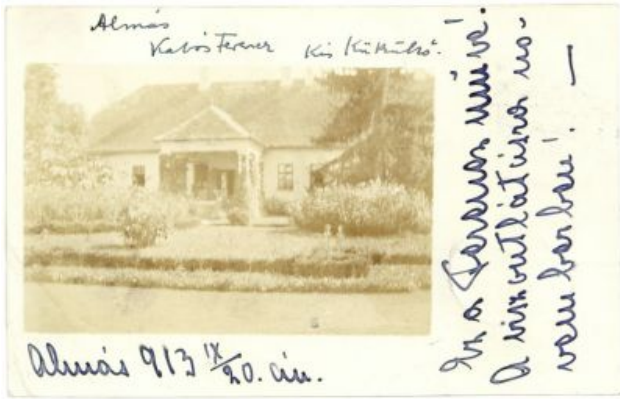 Almás
Kabós Ferencz Kis Küküllő.
Almás 913 IX/20. án.
Ez a Ferencz műve!
A viszontlátásra no-
vemberben! —